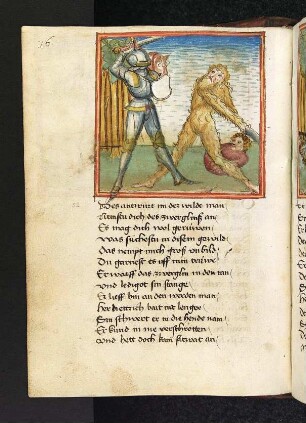 Des antwurt im der wilde man
Nimstu dich des zwerglins an
Es mag dich wol geruwen
Was suchestu in disem gewild
Das nempt mich groß unbild
Du garnest es uff min truwe
Er warff das zwerglin in den tan
Und ledigot sin stange
Er lieff hin an den werden man
Her diettrich bait nit lenger
Ein schwert er in die hende nam
Er kund in nie verschrotten
Und hett doch kein